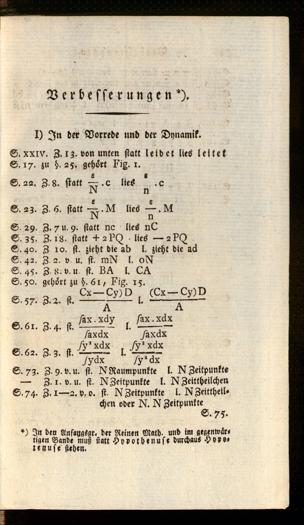 Verbesserungen*).
I) In der Vorrede und der Dynamik.
S. XXIV. Z. 13. von unten statt leibet lies leitet
S. 17. zu §. 25. gehört Fig. 1.
S. 22. Z. 8. statt ε/N . c lies ε/n . c
S. 23. Z. 6. statt ε/N . M lies ε/n . M
S. 29. Z. 7 u. 9. statt nc · lies nC
S. 35. Z. 18. statt + 2 PQ · lies — 2 PQ
S. 40. Z. 10. st. zieht die ab l. zieht die ad
S. 42. Z. 2. v. u. st. mN l. oN
S. 45. Z. 8. v. u. st. BA l. CA
S. 50. gehört zu §. 61, Fig. 15.
S. 57. Z. 2. st. (Cx—Cy) D/A l. (Cx—Cy) D/A
S. 61. Z. 4. st. ſax.xdy/ſaxdx l. ſax.xdx/ſaxdx
S. 62. Z. 3. st. ſy² xdx/ſydx l. ſy² xdx/ſy² dx
S. 73. Z. 9. v. u. st. N Raumpunkte l. N Zeitpunkte
— Z. 1. v. u. st. N Zeitpunkte l. N Zeittheilchen
S. 74. Z. 1—2. v. o. st. N Zeitpunkte l. N Zeittheil-
chen oder N. N Zeitpunkte
S. 75.
*) In den Anfangsgr. der Reinen Math. und im gegenwär-
tigen Bande muß statt Hypothenuse durchaus Hypo-
tenuse stehen.